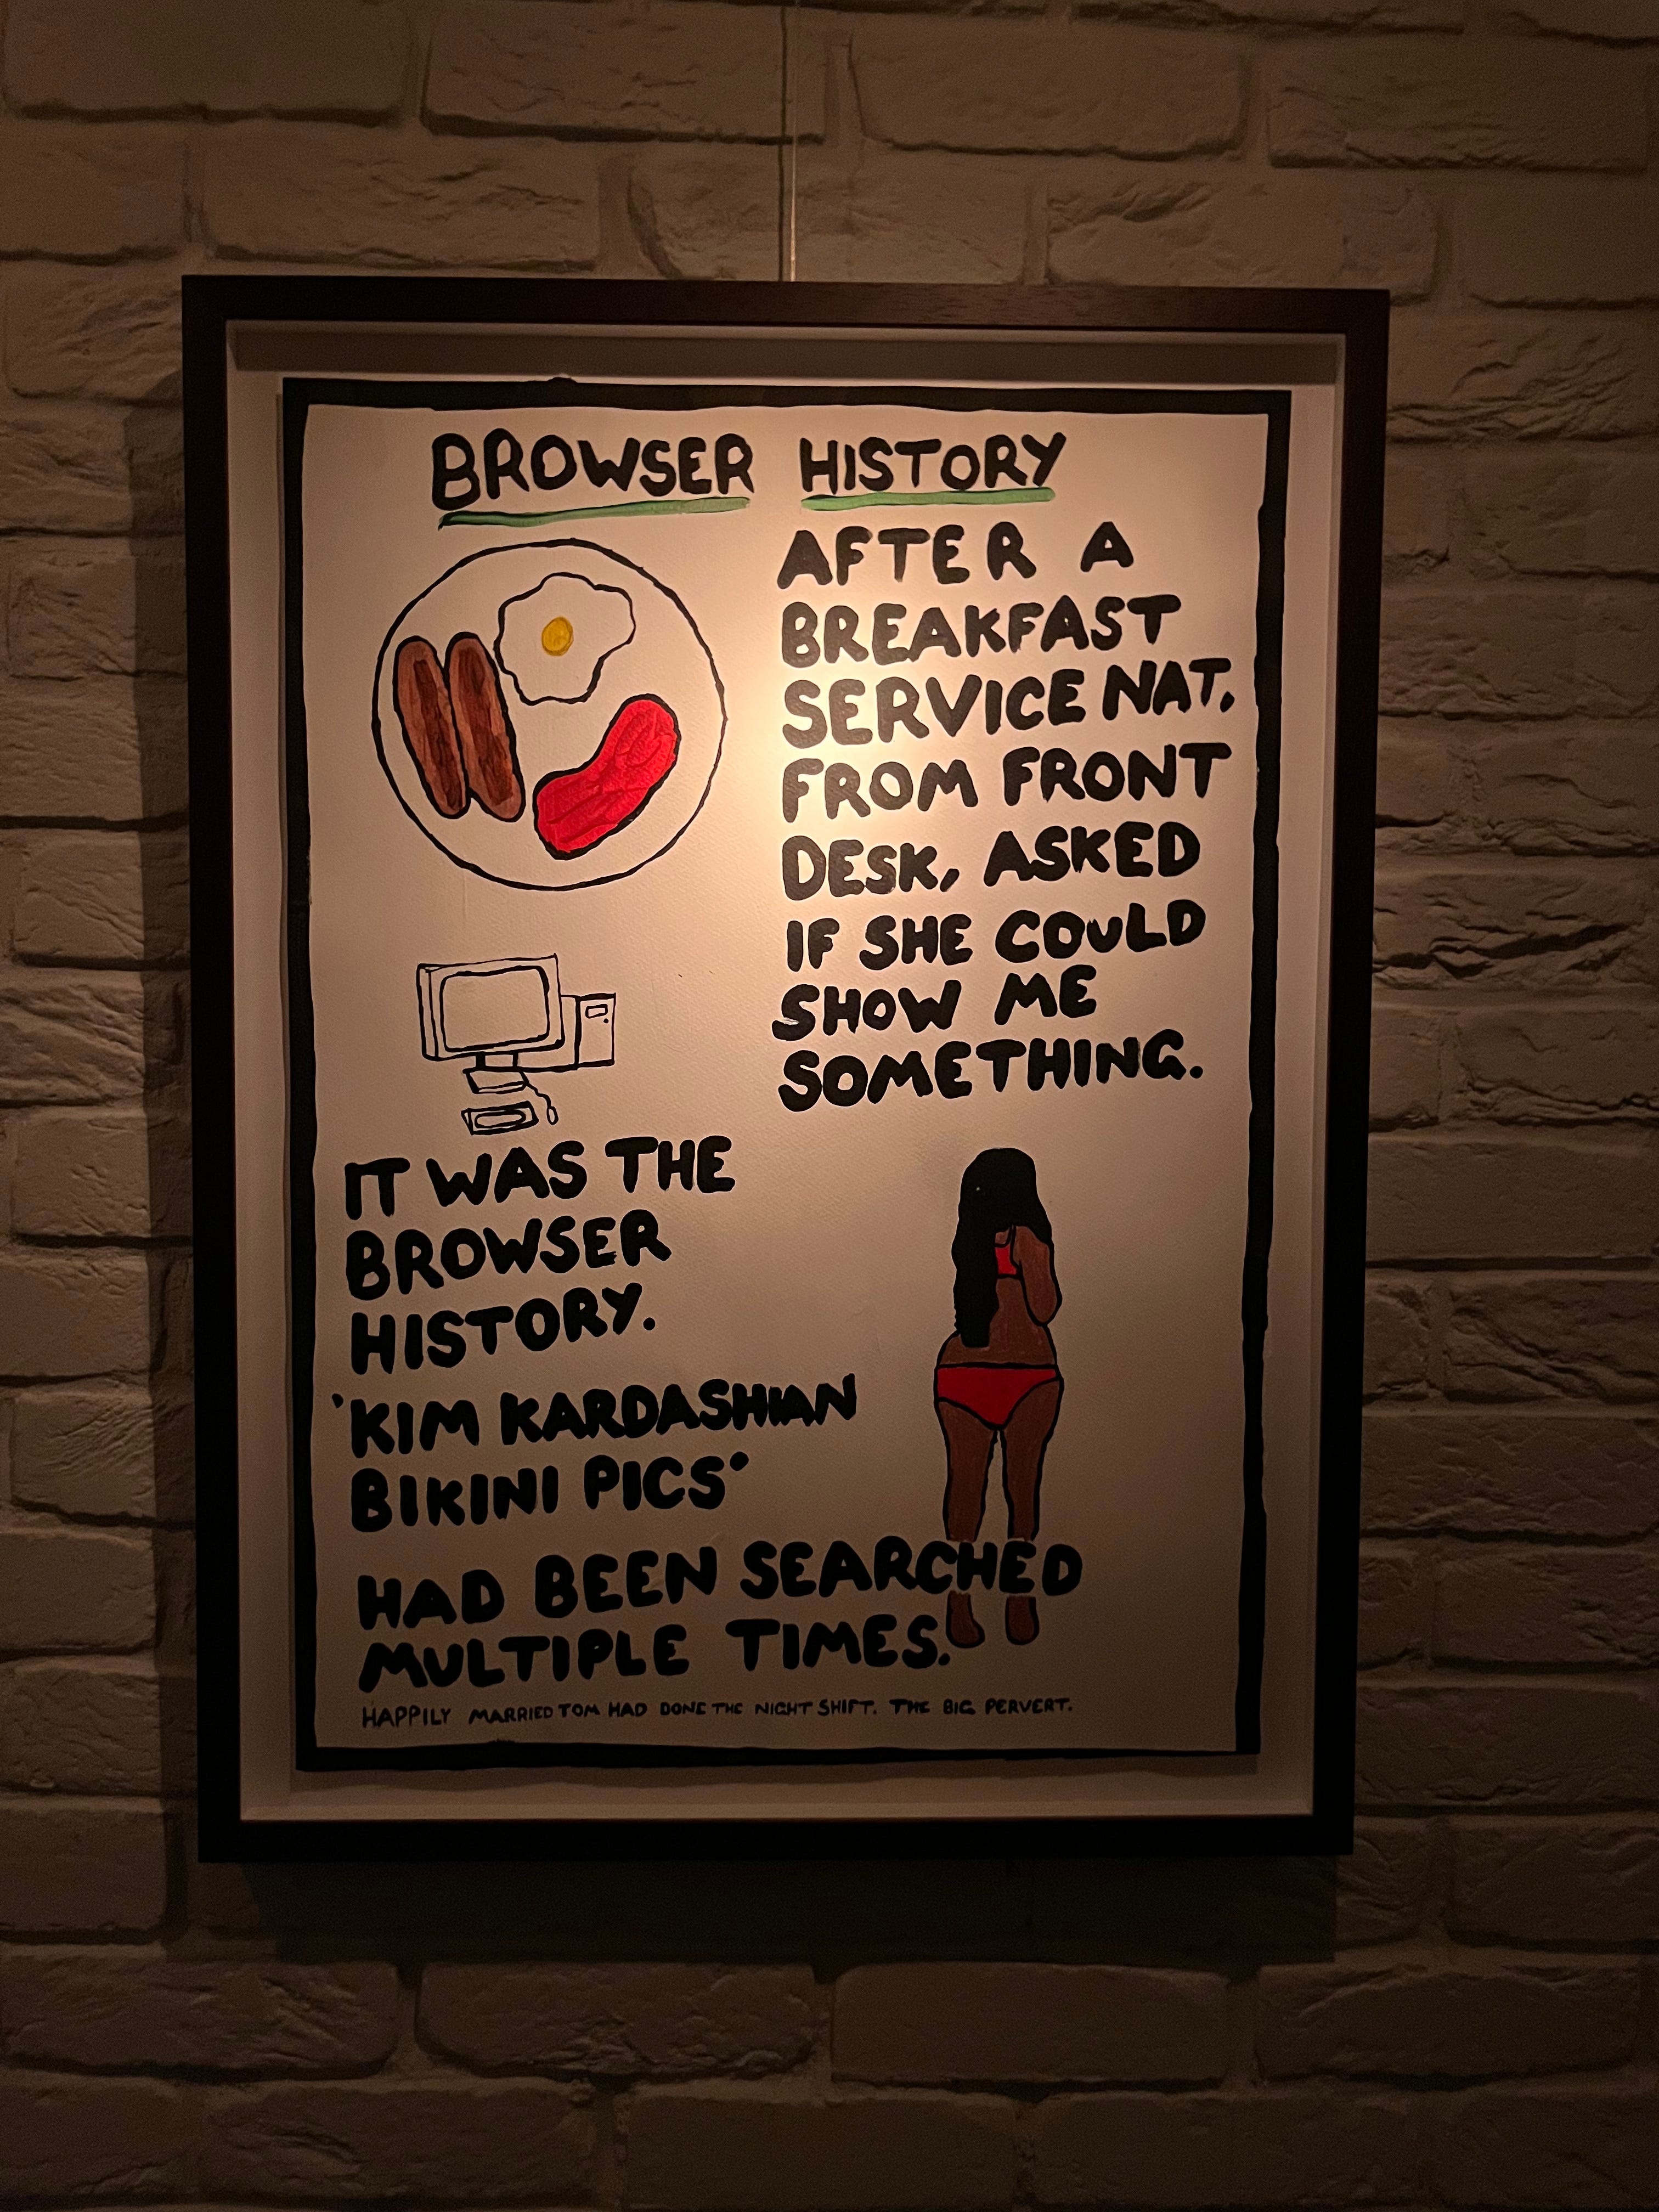 BROWSER HISTORY
AFTER A
BREAKFAST
SERVICE NAT.
FROM FRONT
DESK, ASKED
IF SHE COULD
SHOW ME
SOMETHING.
IT WAS THE
BROWSER
HISTORY.
'KIM KARDASHIAN
BIKINI PICS'
HAD BEEN SEARCHED
MULTIPLE TIMES.
HAPPILY MARRIED TOM HAD DONE THE NIGHT SHIFT. THE BIG PERVERT.